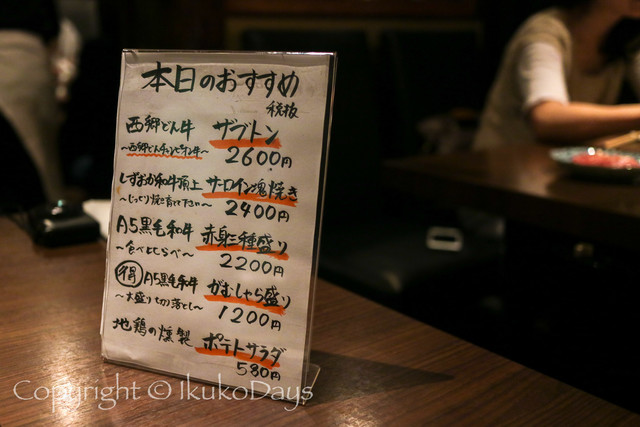 本日のおすすめ
税抜
西郷どん牛 ザブトン
〜西郷どんチャンピオン牛〜 2600円
しずおか和牛頂上 サーロイン塊焼き
〜じっくり焼き育て下さい〜 2400円
A5黒毛和牛 赤身三種盛り
〜食べくらべ〜 2200円
得 A5黒毛和牛 がむしゃら盛り
〜大盛り切り落とし〜 1200円
地鶏の燻製 ポテトサラダ
580円
Copyright © IkukoDays